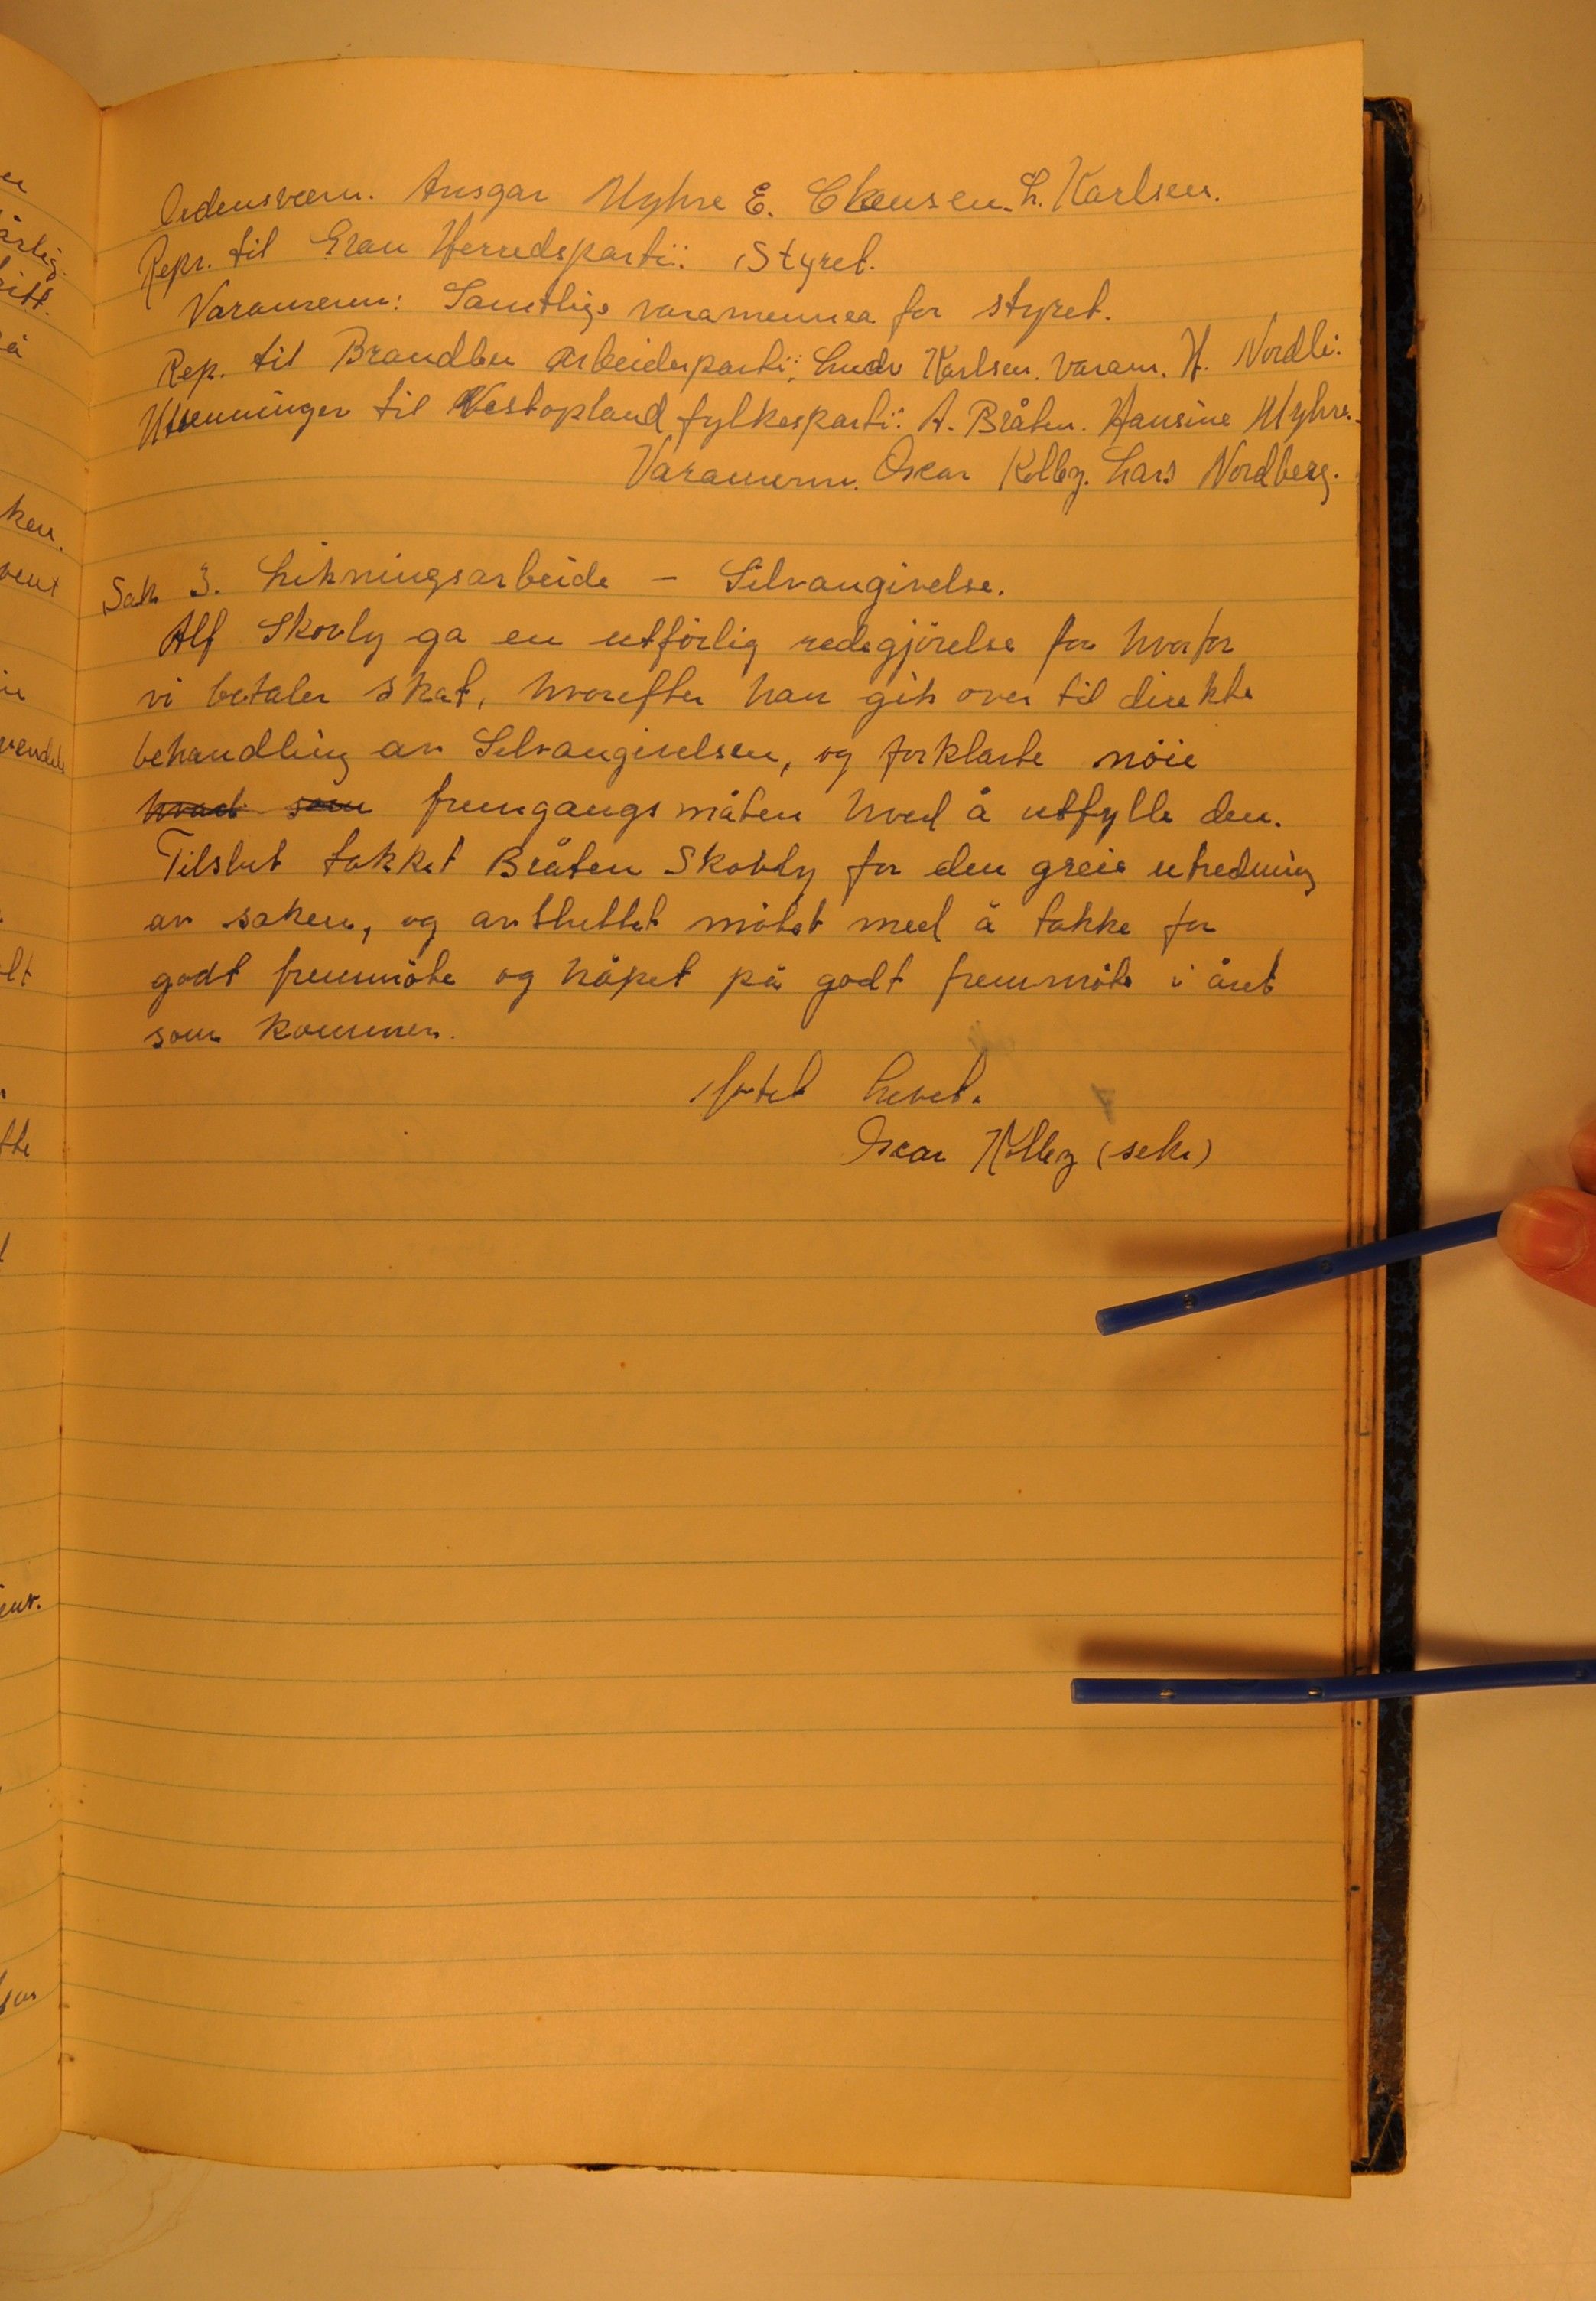 Ordensvern. Ansgar Myhre E. Clausen. L. Karlsen.
Repr. til Gran Herredsparti: Styret.
Varamenn: Samtlige varamennea for styret.
Rep. til Brandbu Arbeiderparti: Ludv Karlsen. Varam. H. Nordli.
Utsenninger til Vestopland fylkesparti: A. Bråten. Hansine Myhre.
Varamenn. Oscar Kolby. Lars Nordberg.
Sak 3. Likningsarbeide – Selvangivelse.
Alf Skovly ga en utförlig redegjörelse for hvorfor
vi betaler skat, hvorefter han gik over til direkte
behandling av Selvangivelsen, og forklarte nöie
hvad som fremgangsmåten hved å utfylle den.
Tilslut takket Bråten Skovly for den greie utredning
av saken, og avsluttet mötet med å takke for
godt fremmöte og håpet på godt fremmöte i året
som kommer.
Mötet hevet.
Oscar Kolby (sekr)